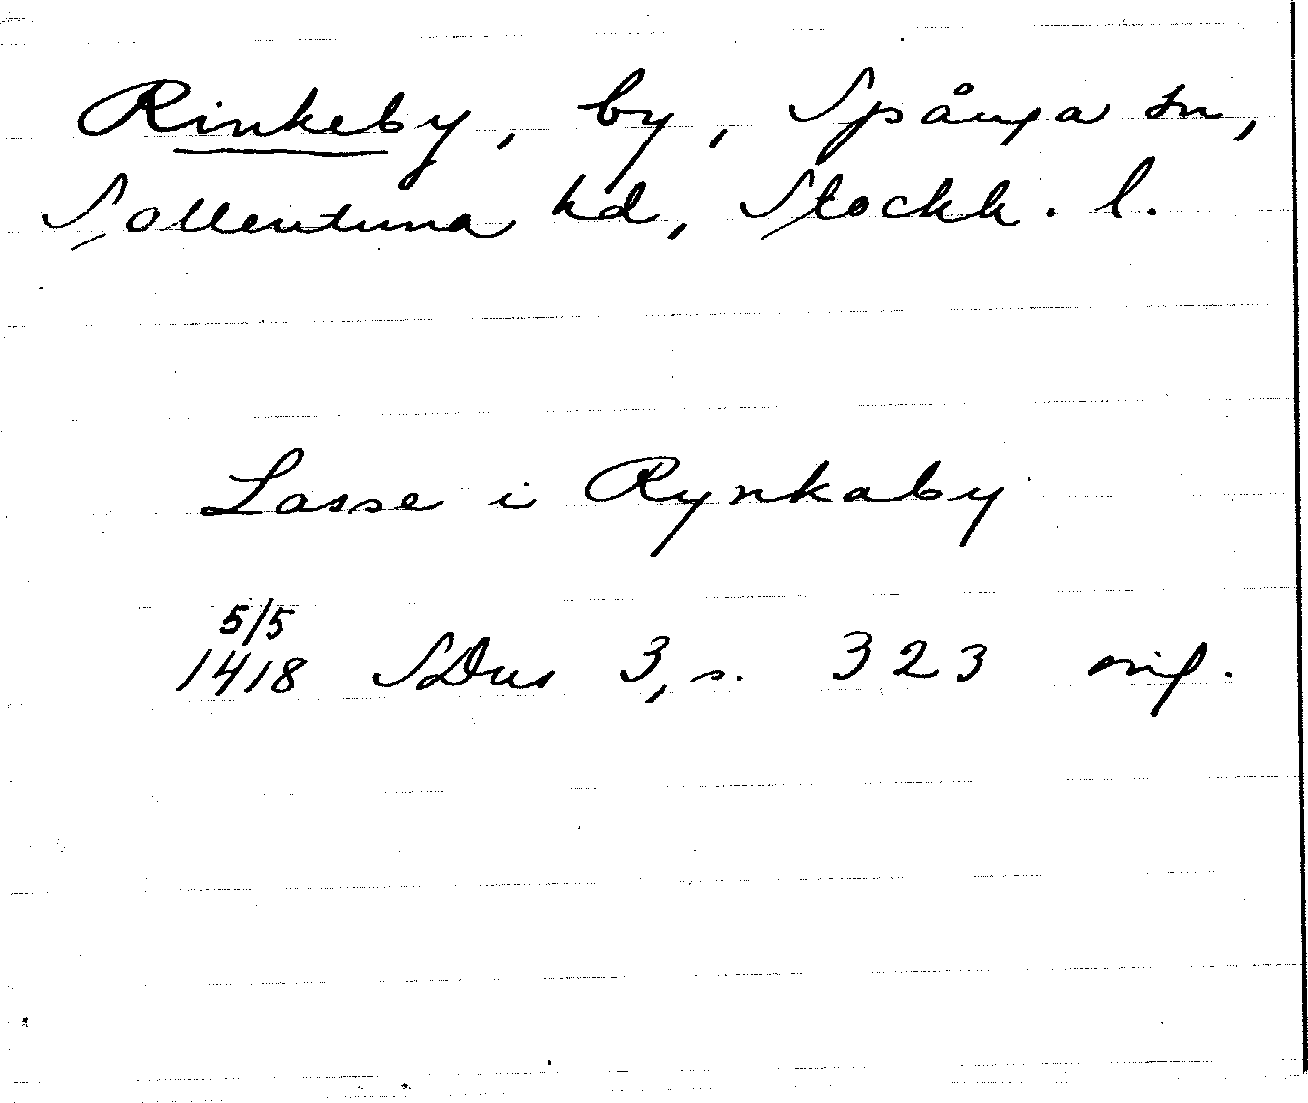 Rinkeby, by, Spånga sn,
Sollentuna hd, Stockh. l.
Lasse i Rynkaby
5/5
1418 SDns 3, s. 323 orig.